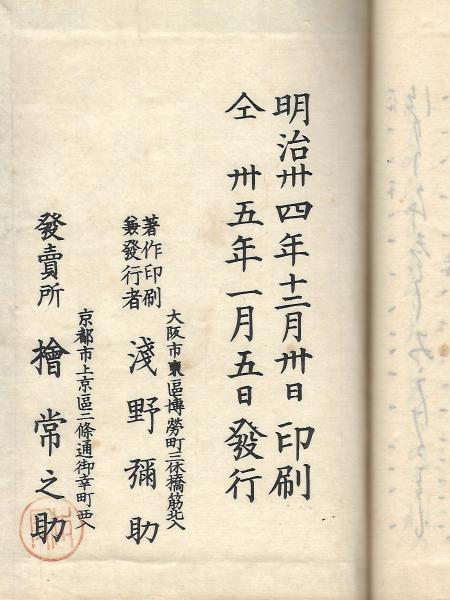 明治卅四年十二月卅日印刷
仝 卅五年一月五日發行
大阪市東區博勞町三休橋筋北入
著作印刷
兼發行者 淺野彌助
京都市上京區三條通御幸町西入
發賣所 檜常之助